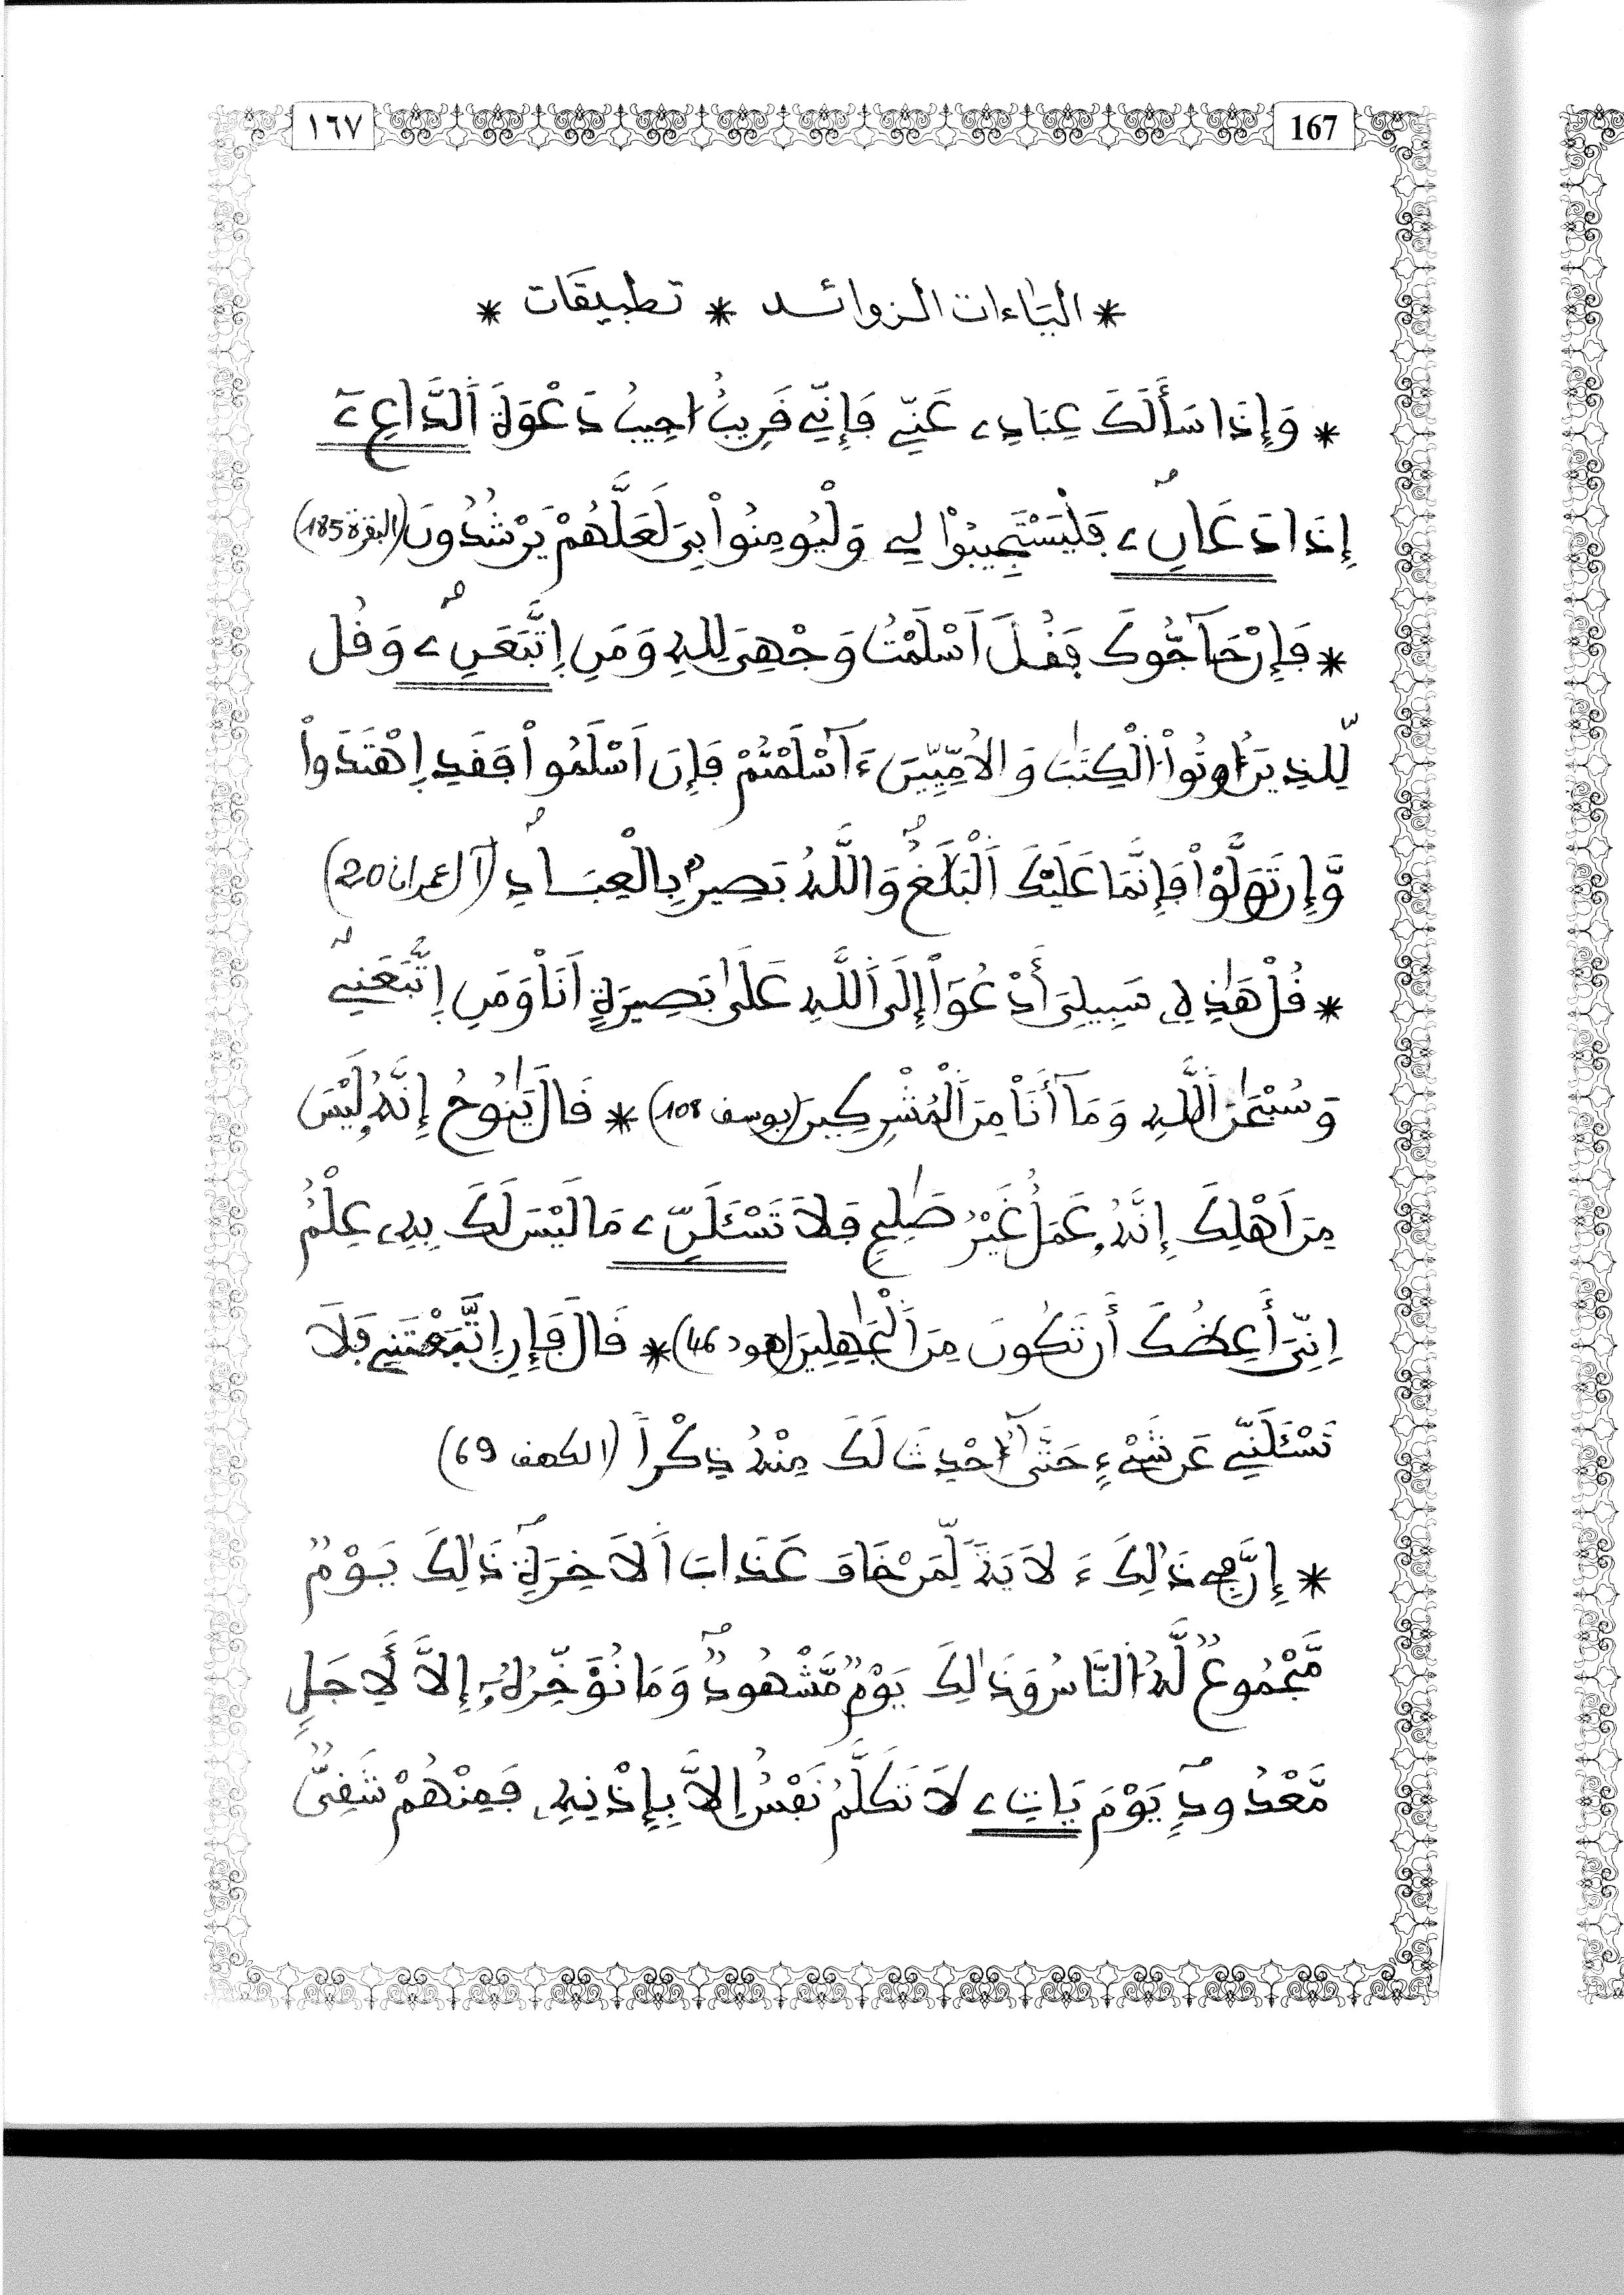 167 ١٦٧
* الياءات الزوائد * تطبيقات *
* وَإِذَا سَأَلَكَ عِبَادِے عَنِّے فَإِنِّے قَرِيبٌ اجِيبُ دَعْوَةَ اَلدَّاعِۦٓ
إِذَا دَعَانِۦ فَلْيَسْتَجِيبُواْ لِے وَلْيُومِنُواْ بِيَ لَعَلَّهُمْ يَرْشُدُونَ (البقرة 185)
* فَإِنْ حَآجُّوكَ فَقُلَ اَسْلَمْتُ وَجْهِيَ لِلهِ وَمَنِ اِتَّبَعَنِۦ وَقُل
لِّلذِينَ أُوتُواْ اُلْكِتَٰبَ وَالاُمِّيِّينَ ءَآسْلَمْتُمْ فَإِنَ اَسْلَمُواْ فَقَدِ اِهْتَدَواْ
وَّإِن تَوَلَّوْاْ فَإِنَّمَا عَلَيْكَ اَلْبَلَٰغُ وَاللَّهُ بَصِيرٌ بِالْعِبَادِ (آل عمران 20)
* قُلْ هَٰذِهِۦ سَبِيلِيَ أَدْعُوٓاْ إِلَى اَللَّهِ عَلَىٰ بَصِيرَةٍ اَنَاْ وَمَنِ اِتَّبَعَنِے
وَسُبْحَٰنَ اَللَّهِ وَمَآ أَنَاْ مِنَ اَلْمُشْرِكِينَ (يوسف 108) * قَالَ يَٰنُوحُ إِنَّهُۥ لَيْسَ
مِنَ اَهْلِكَ إِنَّهُۥ عَمَلٌ غَيْرُ صَٰلِحٍ فَلَا تَسْـَٔلَنِّۦ مَا لَيْسَ لَكَ بِهِۦ عِلْمٌ
اِنِّيَ أَعِظُكَ أَن تَكُونَ مِنَ اَلْجَٰهِلِينَ (هود 46) * قَالَ فَإِنِ اِتَّبَعْتَنِے فَلَا
تَسْـَٔلَنِّے عَن شَےْءٍ حَتَّىٰٓ أُحْدِثَ لَكَ مِنْهُ ذِكْراً (الكهف 69)
* إِنَّ فِے ذَٰلِكَ ءَلَايَةً لِّمَنْ خَافَ عَذَابَ اَلَاخِرَةِ ذَٰلِكَ يَوْمٌ
مَّجْمُوعٌ لَّهُ اُلنَّاسُ وَذَٰلِكَ يَوْمٌ مَّشْهُودٌ وَمَا نُؤَخِّرُهُۥٓ إِلَّا لِأَجَلٍ
مَّعْدُودٍ يَوْمَ يَاتِۦ لَا تَكَلَّمُ نَفْسٌ اِلَّا بِإِذْنِهِۦ فَمِنْهُمْ شَقِيٌّ